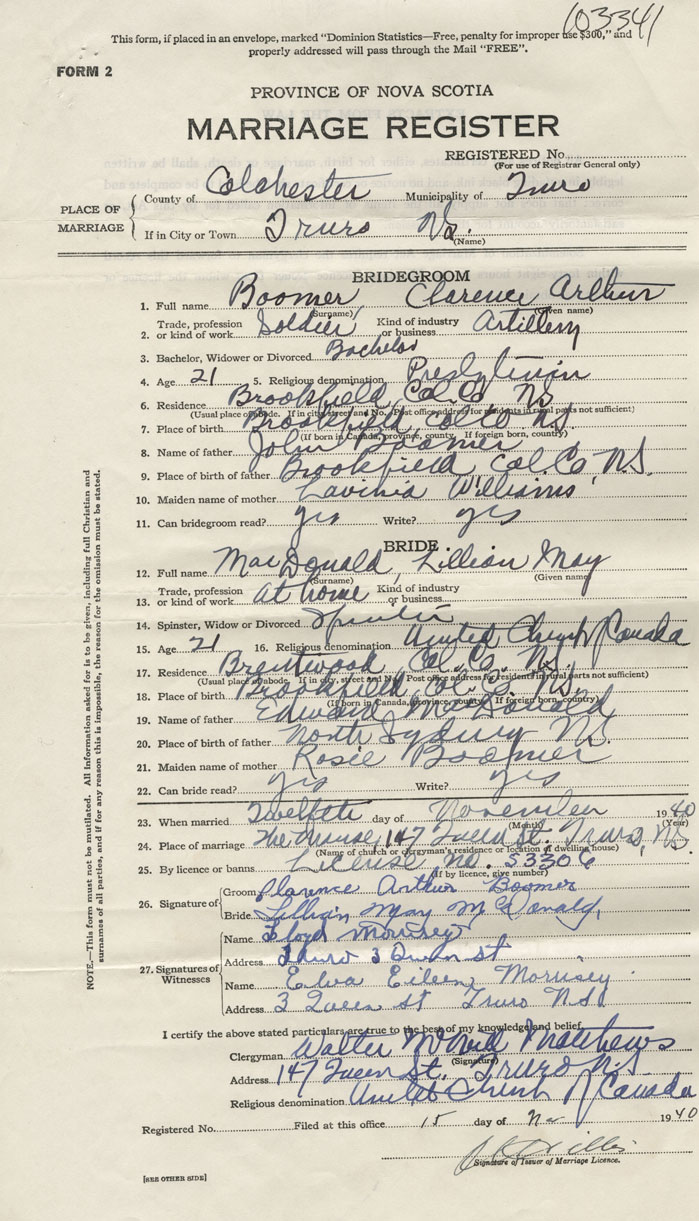 103341
This form, if placed in an envelope, marked "Dominion Statistics—Free, penalty for improper use $300," and
properly addressed will pass through the Mail "FREE".
FORM 2
PROVINCE OF NOVA SCOTIA
MARRIAGE REGISTER
REGISTERED No.
(For use of Registrar General only)
PLACE OF MARRIAGE
County of Colchester Municipality of Truro
If in City or Town Truro NS.
(Name)
BRIDEGROOM
1. Full name Boomer Clarence Arthur
(Surname) (Given name)
2. Trade, profession or kind of work Soldier Kind of industry or business Artillery
3. Bachelor, Widower or Divorced Bachelor
4. Age 21 5. Religious denomination Presbyterian
6. Residence Brookfield, Col. Co. NS
(Usual place of abode. If in city, street and No. Post office address for residents in rural parts not sufficient)
7. Place of birth Brookfield, Col. Co. N.S.
(If born in Canada, province, county. If foreign born, country)
8. Name of father John Boomer
9. Place of birth of father Brookfield Col. Co. N.S.
10. Maiden name of mother Lavinia Williams
11. Can bridegroom read? yes Write? yes
BRIDE
12. Full name MacDonald, Lillian May
(Surname) (Given name)
13. Trade, profession or kind of work at home Kind of industry or business
14. Spinster, Widow or Divorced Spinster
15. Age 21 16. Religious denomination United Church of Canada
17. Residence Brentwood Col. Co. N.S.
(Usual place of abode. If in city, street and No. Post office address for residents in rural parts not sufficient)
18. Place of birth Brookfield, Col. Co. N.S.
(If born in Canada, province, county. If foreign born, country)
19. Name of father Edward MacDonald
20. Place of birth of father North Sydney N.S.
21. Maiden name of mother Rosie Boomer
22. Can bride read? yes Write? yes
23. When married Twelfth day of November 1940
(Month) (Year)
24. Place of marriage The Manse, 147 Queen St. Truro, NS
(Name of church or clergyman's residence or location of dwelling house)
25. By licence or banns License No. 53306
(If by licence, give number)
26. Signature of
Groom Clarence Arthur Boomer
Bride Lillian May McDonald
27. Signatures of Witnesses
Name Lloyd Morrisey
Address Truro 3 Queen st
Name Elva Eileen Morrisey
Address 3 Queen st Truro N.S
I certify the above stated particulars are true to the best of my knowledge and belief.
Clergyman Walter Matthews
(Signature)
Address 147 Queen St. Truro N.S.
Religious denomination United Church of Canada
Registered No. Filed at this office 15 day of Nov 1940
Signature of Issuer of Marriage Licence.
[SEE OTHER SIDE]
NOTE.—This form must not be mutilated. All information asked for is to be given, including full Christian and
surnames of all parties, and if for any reason this is impossible, the reason for the omission must be stated.